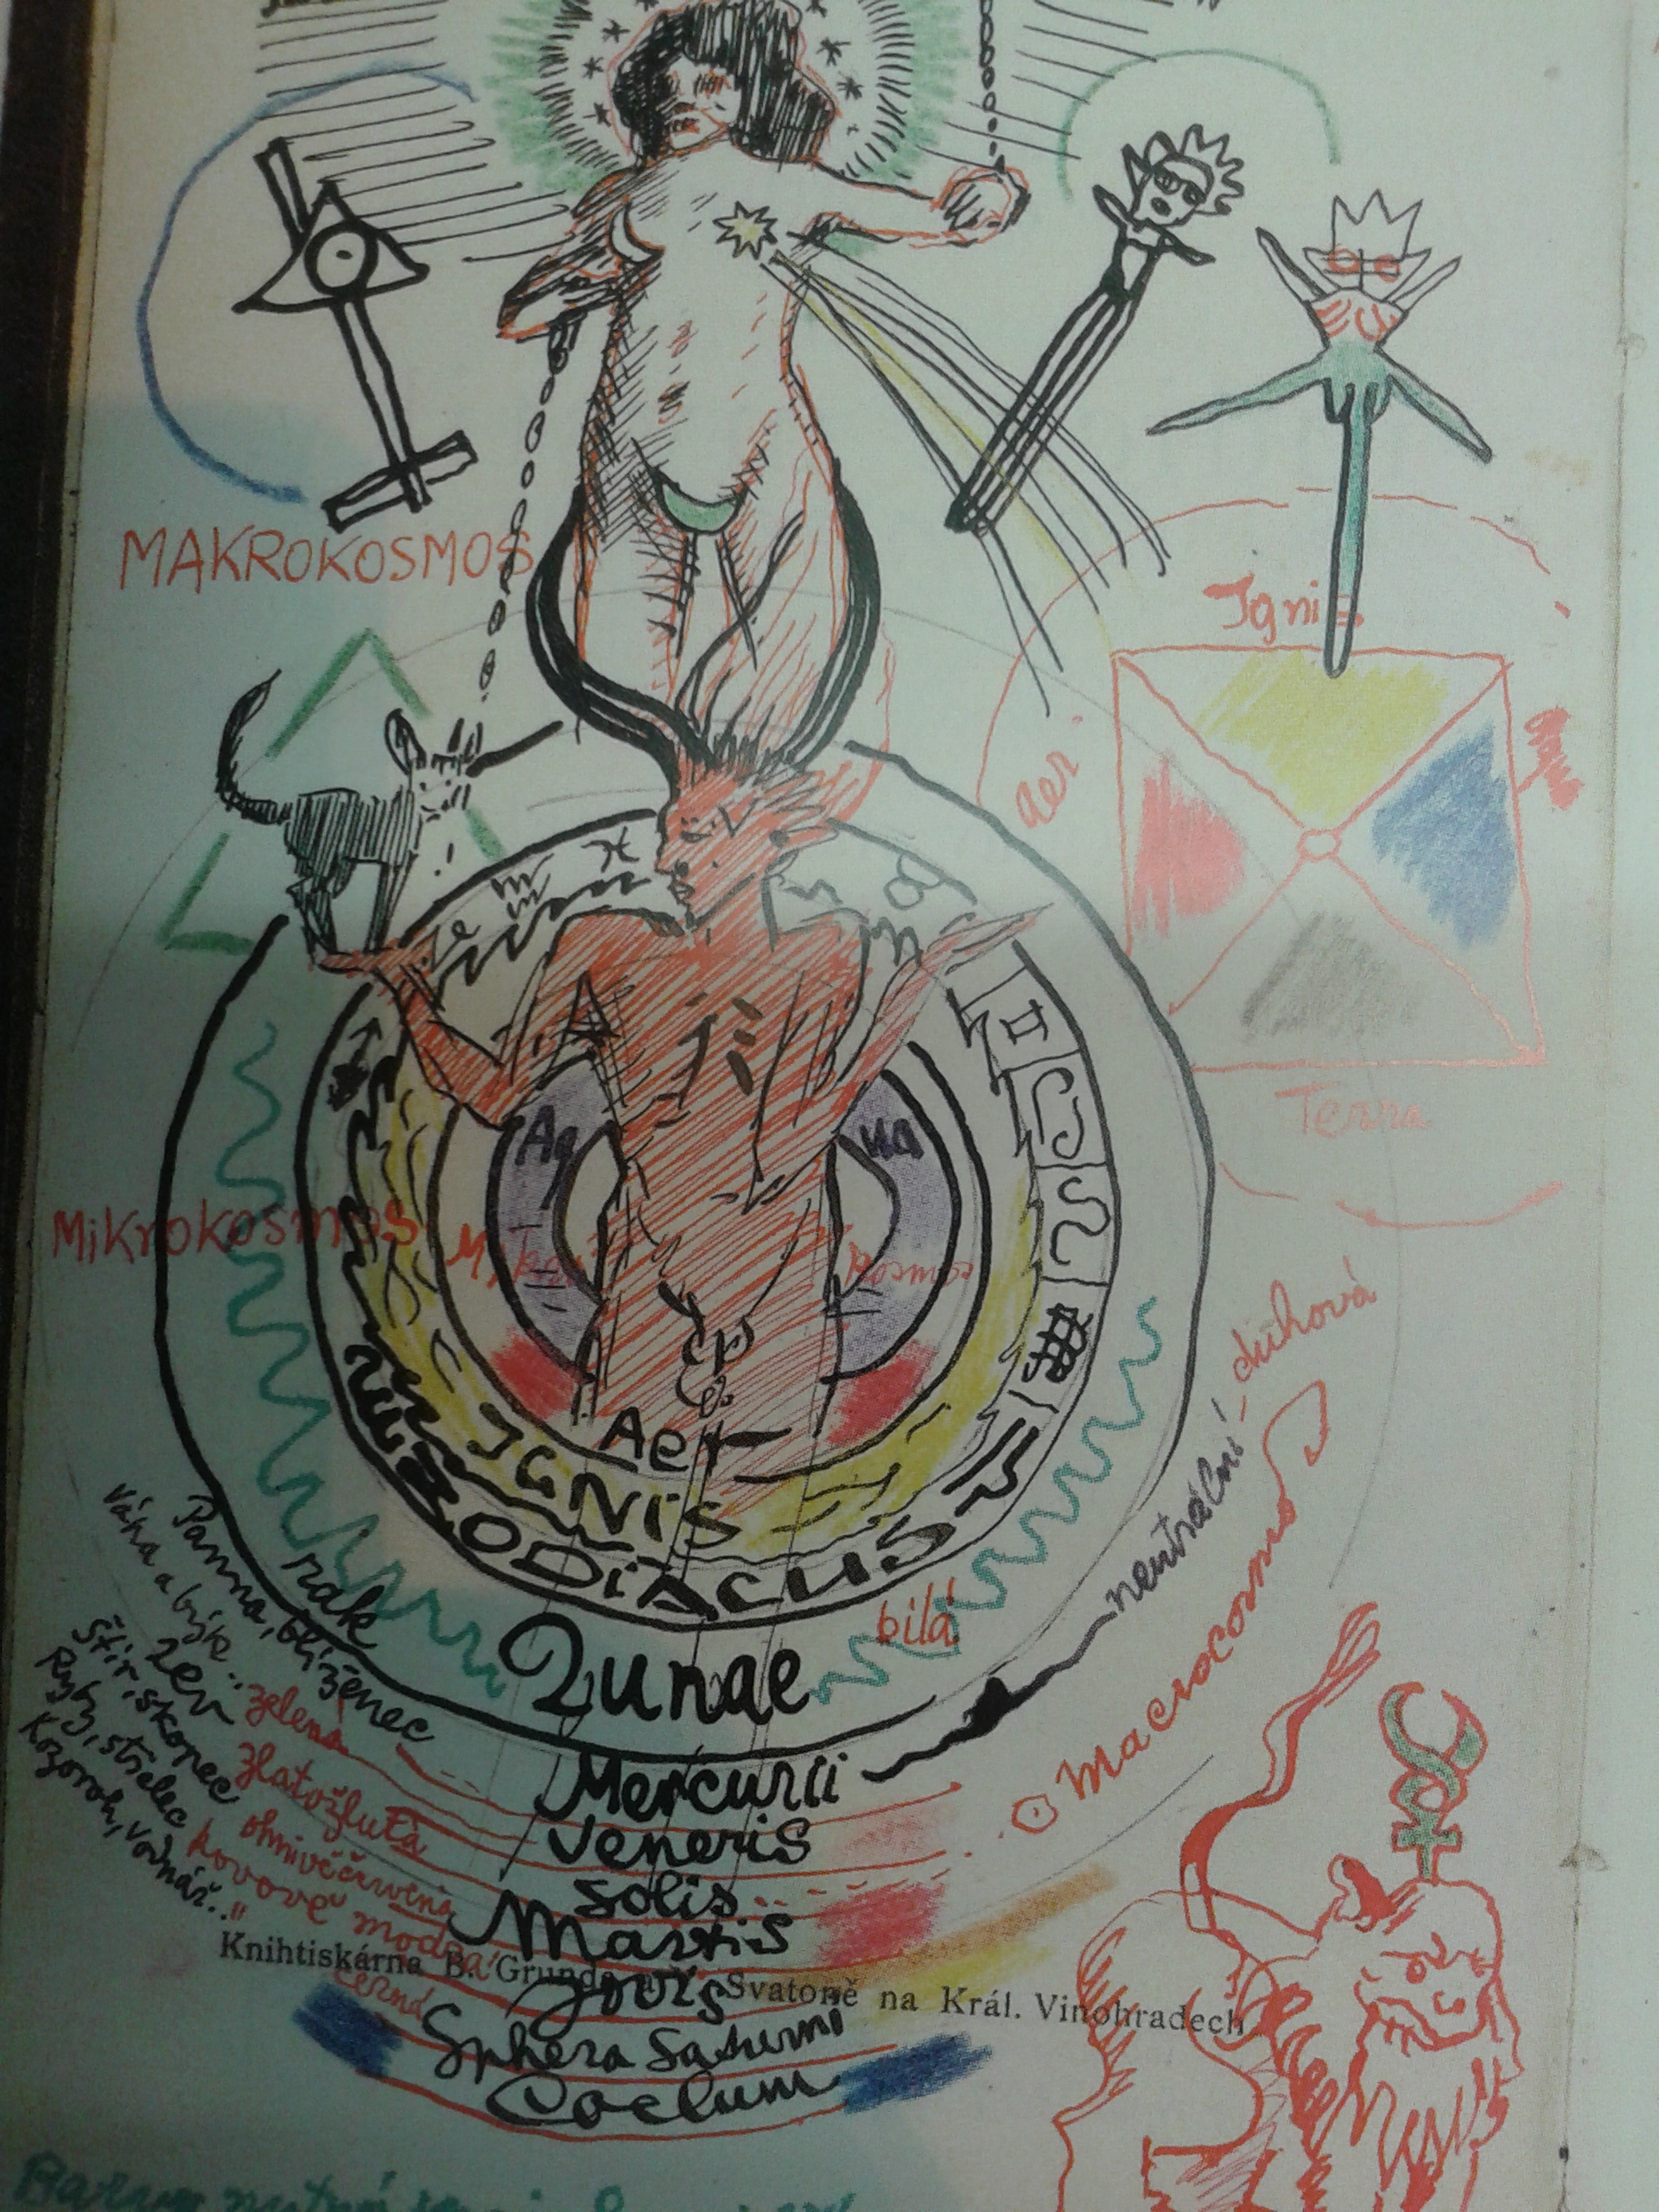 MAKROKOSMOS
Ignis
aer
Terra
Aq
ua
Mikrokosmos
Mikro
kosmos
Aer
IGNIS
ZODIACUS
Lunae
bílá
neutrální - duhová
Macrocosmos
rak
Panna, blíženec
Váha a býk..
zelená
lev
zlatožlutá
Štír, skopec
ohnivěčervená
Ryby, střelec
kovově modrá
Kozoroh, vodnář..
černá
Mercurii
Veneris
Solis
Martis
Jovis
Sphera Saturni
Coelum
Knihtiskárna B. Grunda a V. Svatoně na Král. Vinohradech